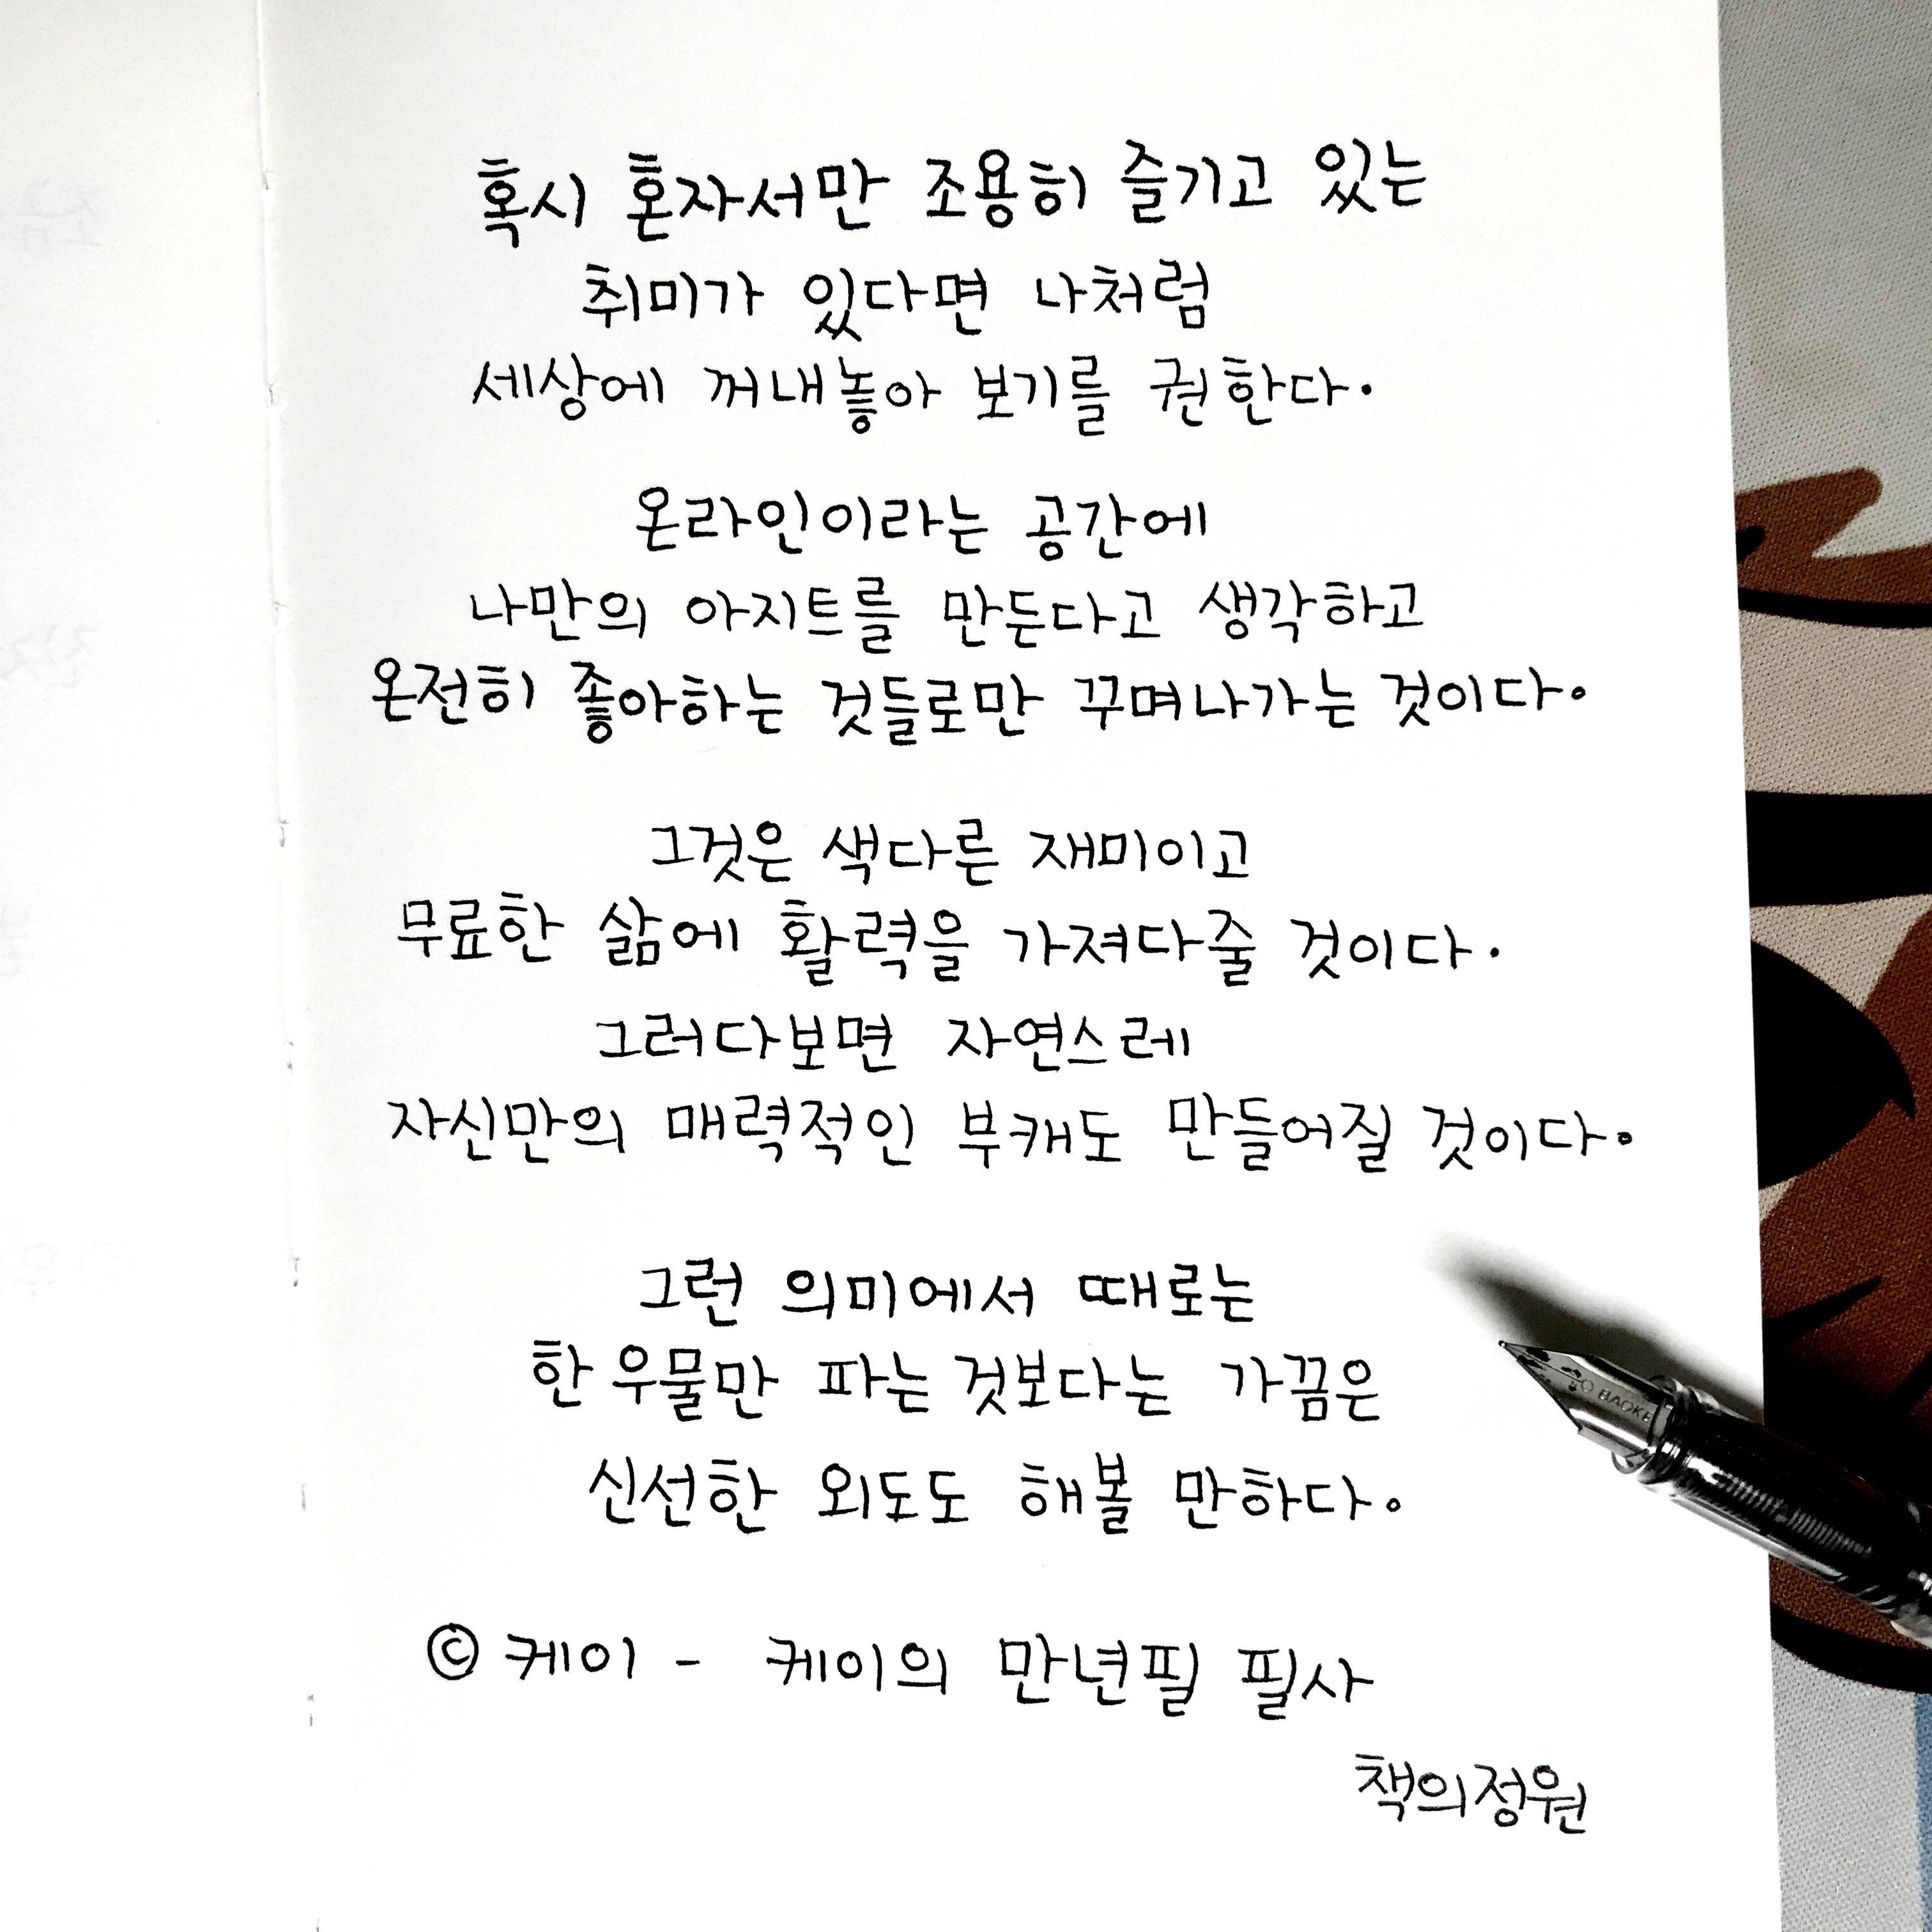 혹시 혼자서만 조용히 즐기고 있는
취미가 있다면 나처럼
세상에 꺼내놓아 보기를 권한다.
온라인이라는 공간에
나만의 아지트를 만든다고 생각하고
온전히 좋아하는 것들로만 꾸며나가는 것이다.
그것은 색다른 재미이고
무료한 삶에 활력을 가져다줄 것이다.
그러다보면 자연스레
자신만의 매력적인 부캐도 만들어질 것이다.
그런 의미에서 때로는
한 우물만 파는 것보다는 가끔은
신선한 외도도 해볼 만하다.
© 케이 - 케이의 만년필 필사
책의정원